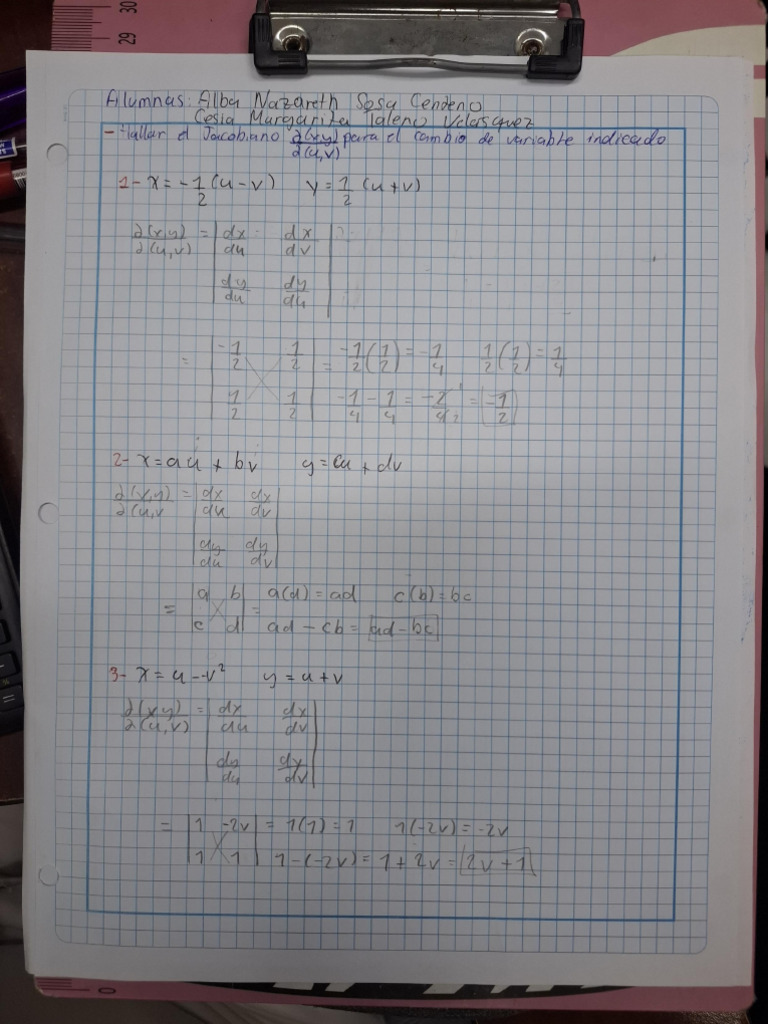 30
29
Alumnas: Alba Nazareth Sosa Cendeno
Cesia Margarita Taleno Velasquez
- Hallar el Jacobiano ∂(x,y)/∂(u,v) para el cambio de variable indicado
1- x = -1/2 (u - v) y = 1/2 (u + v)
∂(x,y)/∂(u,v) = | dx/du dx/dv |
| dy/du dy/du |
= | -1/2 1/2 | = -1/2 (1/2) = -1/4 1/2 (1/2) = 1/4
| 1/2 1/2 | -1/4 - 1/4 = -2/4 = -1/2
2- x = au + bv y = cu + dv
∂(x,y)/∂(u,v = | dx/du dx/dv |
| dy/du dy/dv |
= | a b | = a(d) = ad c(b) = bc
| c d | ad - cb = ad - bc
3- x = u - v² y = u + v
∂(x,y)/∂(u,v) = | dx/du dx/dv |
| dy/du dy/dv |
= | 1 -2v | = 1(1) = 1 1(-2v) = -2v
| 1 1 | 1 - (-2v) = 1 + 2v = 2v + 1
0